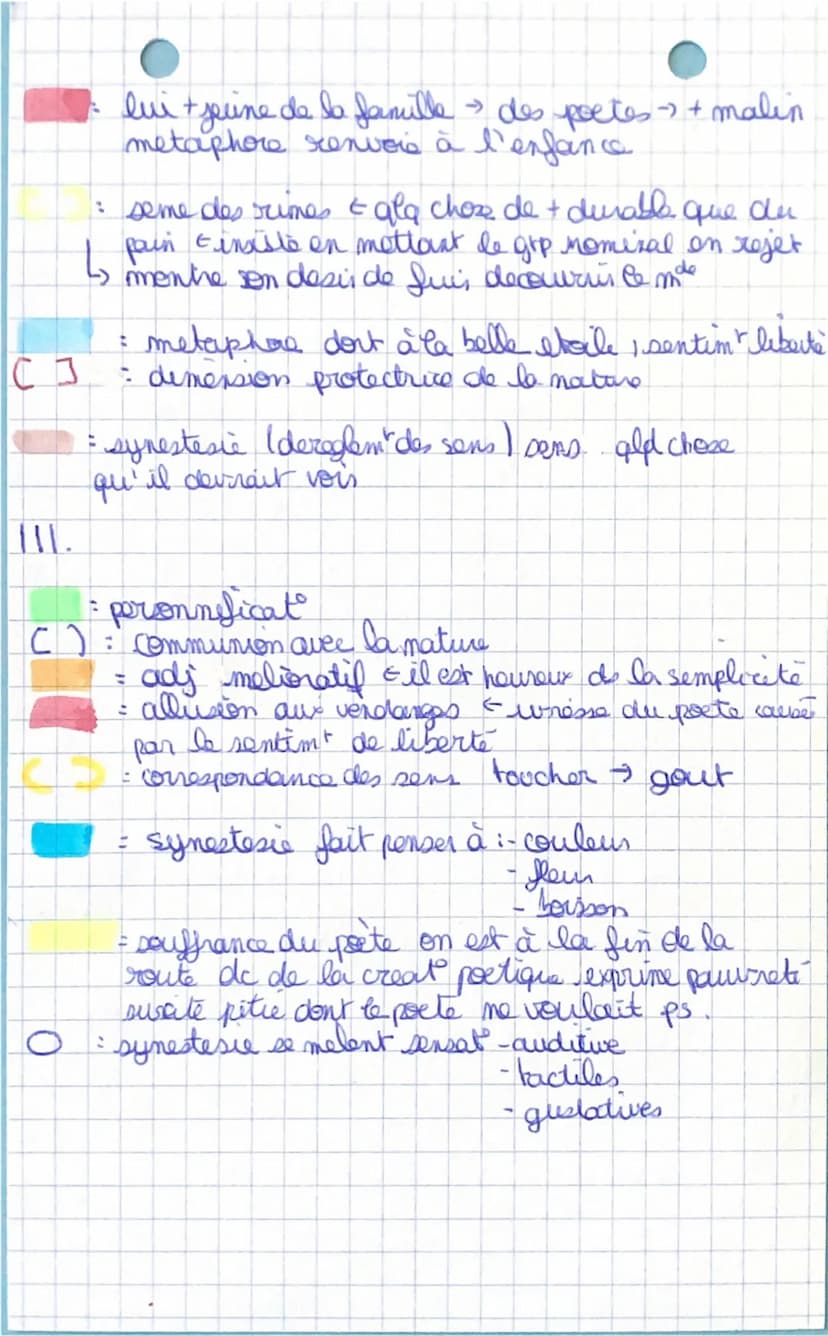 : lui + jeune de la famille → des poetes → + malin
metaphore renvoie à l'enfance
: seme des rimes ← qlq chose de + durable que du
pain ← insiste en mettant le grp nominal en rejet
↳ montre son desir de fuir, decouvrir le mde
: metaphore dort à la belle etoile, sentimt liberté
[ ] : dimension protectrice de la nature
: synestesie (dereglemt des sens) sens qlq chose
qu'il devrait voir
III.
: personnificat°
( ) : communion avec la nature
= adj melioratif ← il est heureux ds la semplicité
= allusion aux vendanges ← ivresse du poete causé
par le sentimt de liberté
( ) = correspondance des sens toucher → gout
= synestesie fait penser à :- couleur
- fleur
- boisson
= souffrance du poète on est à la fin de la
route dc de la creat° poetique, exprime pauvreté
suscite pitié dont le poete ne voulait ps.
O : synestesie se melent sensat° - auditive
- tactiles
- gustatives